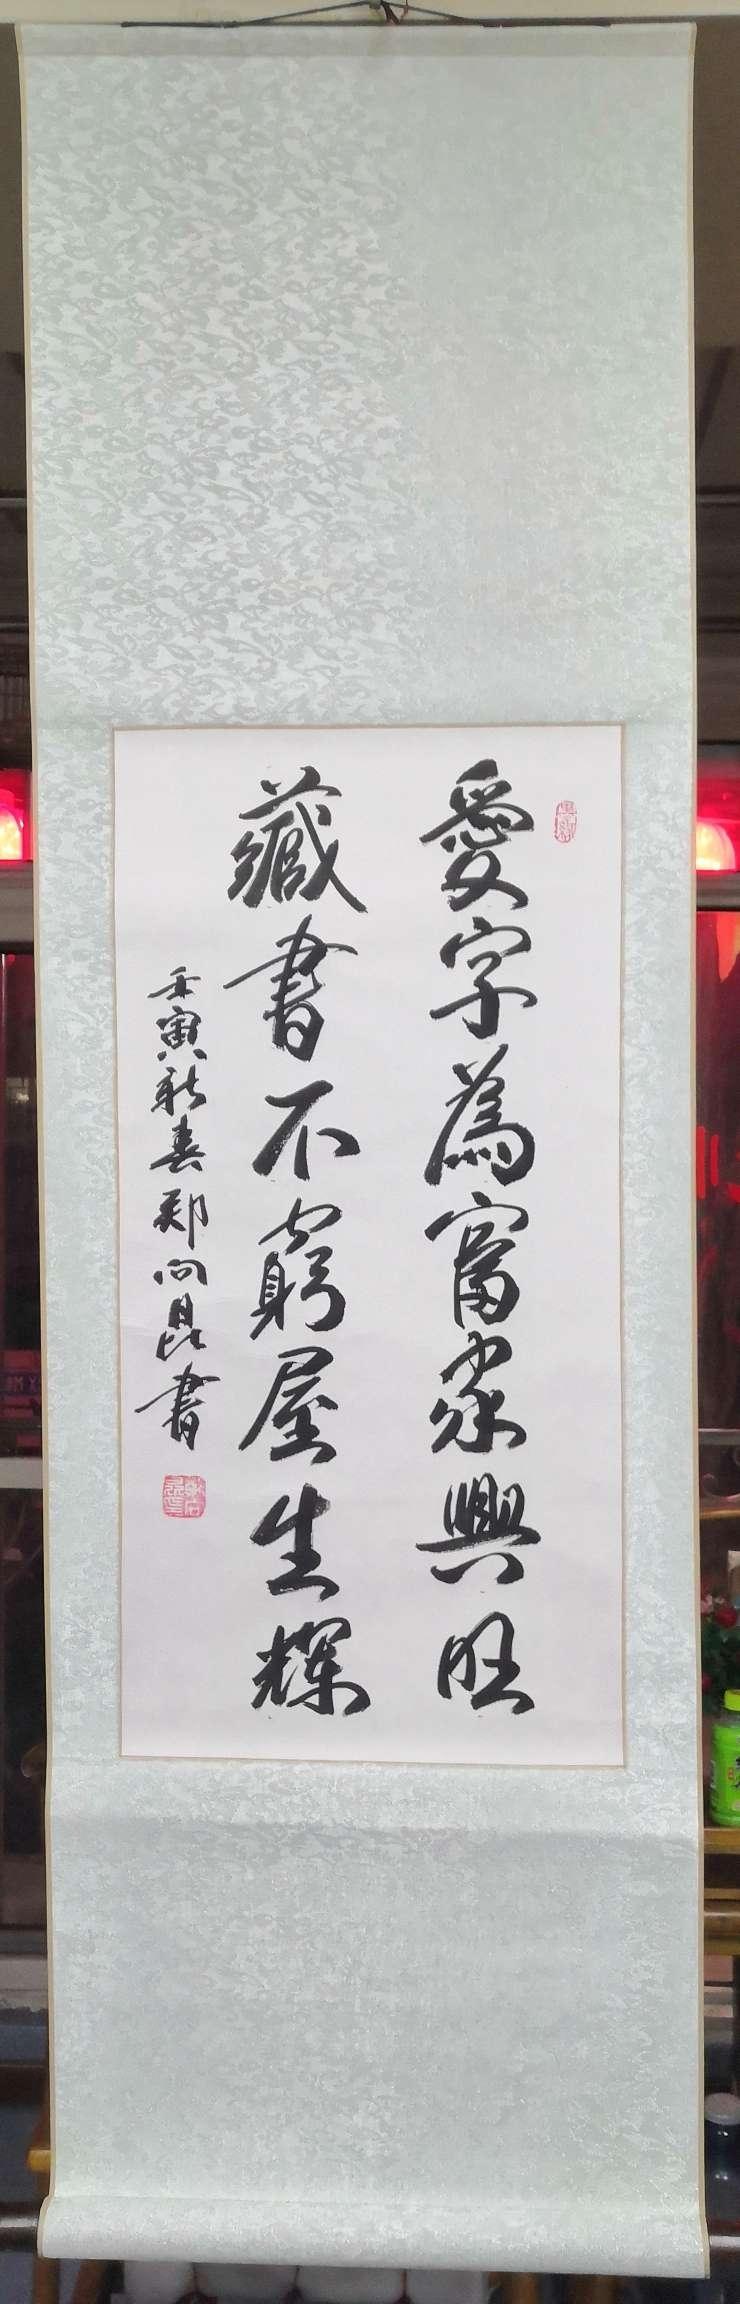 愛字為富家興旺
藏書不窮屋生輝
壬寅新春鄭向昆書